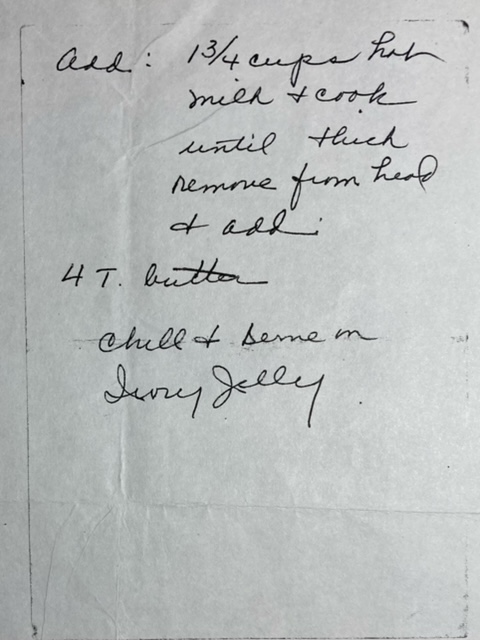 Add: 1 3/4 cups hot
milk & cook
until thick
remove from head
& add:
4 T. butter
Chill & serve on
Ivory Jelly